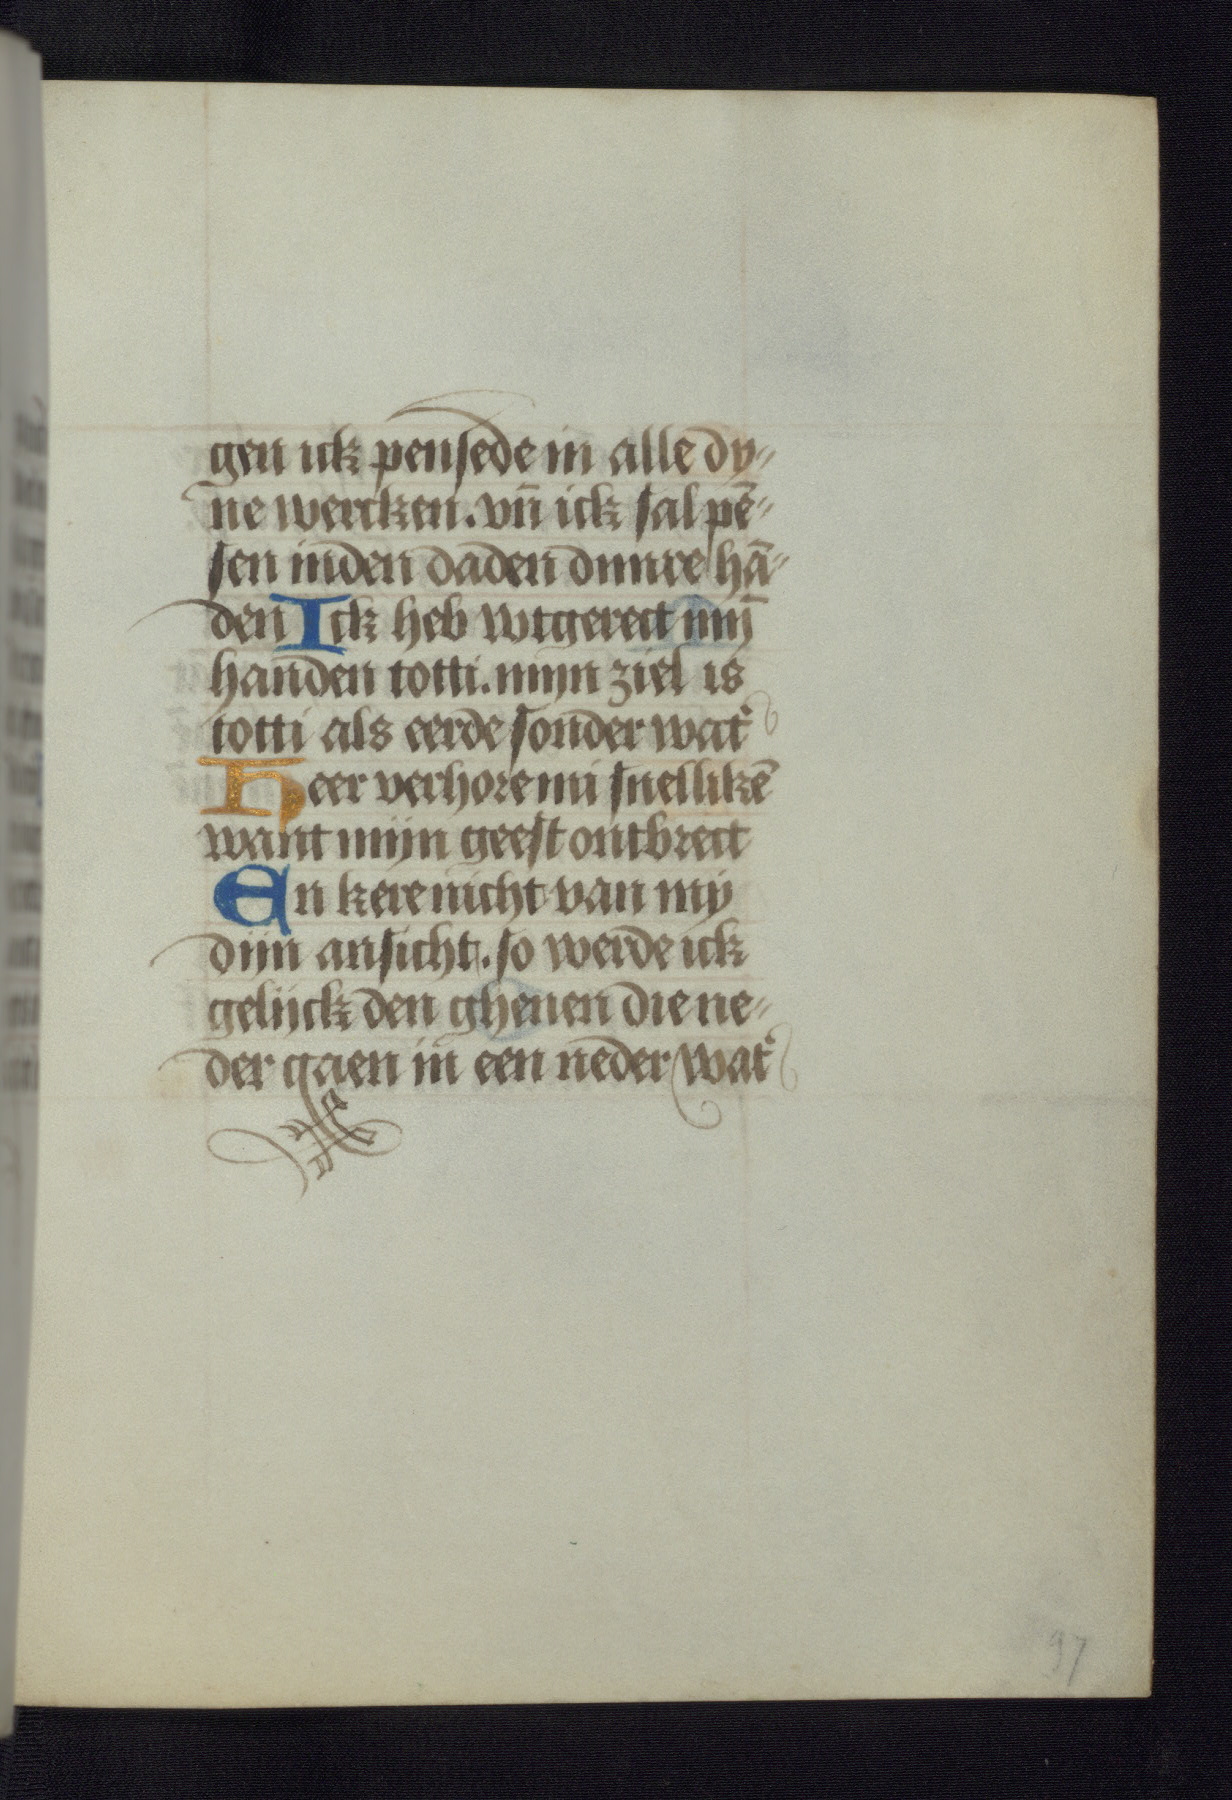 gen ick pensede in alle dy⸗
ne wercken. vn̄ ick sal pē⸗
sen inden daden dijnre hā⸗
den Ick heb wtgerect mijn̄
handen totti. mijn ziel is
totti als eerde sonder wat̉
Heer verhore mi snellikē
want mijn geest ontbrect
En kere nicht van mÿ
dijn ansicht. so werde ick
gelijck den ghenen die ne⸗
der gaen in een neder wat̉
97